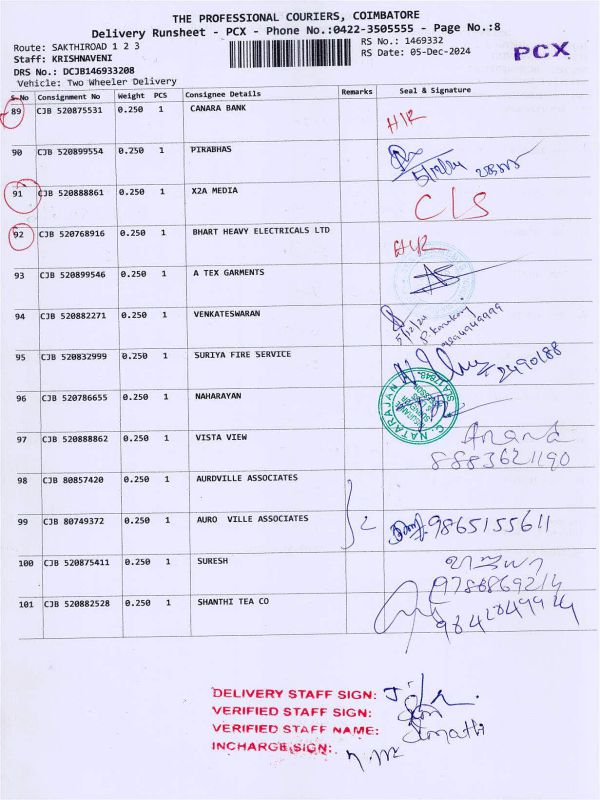 THE PROFESSIONAL COURIERS, COIMBATORE
Delivery Runsheet - PCX - Phone No.:0422-3505555 - Page No.:8
Route: SAKTHIROAD 1 2 3 RS No.: 1469332
Staff: KRISHNAVENI RS Date: 05-Dec-2024 PCX
DRS No.: DCJB146933208
Vehicle: Two Wheeler Delivery
S.No Consignment No Weight PCS Consignee Details Remarks Seal & Signature
89 CJB 520875531 0.250 1 CANARA BANK H/R
90 CJB 520899554 0.250 1 PIRABHAS 5/12/24
91 CJB 520888861 0.250 1 X2A MEDIA C/S
92 CJB 520768916 0.250 1 BHART HEAVY ELECTRICALS LTD H/R
93 CJB 520899546 0.250 1 A TEX GARMENTS
94 CJB 520882271 0.250 1 VENKATESWARAN 5/12/24
95 CJB 520832999 0.250 1 SURIYA FIRE SERVICE
96 CJB 520786655 0.250 1 NAHARAYAN C. NATARAJAN
97 CJB 520888862 0.250 1 VISTA VIEW Anand
8883621190
98 CJB 80857420 0.250 1 AURDVILLE ASSOCIATES
99 CJB 80749372 0.250 1 AURO VILLE ASSOCIATES 2 9865155611
100 CJB 520875411 0.250 1 SURESH
9786869214
101 CJB 520882528 0.250 1 SHANTHI TEA CO
DELIVERY STAFF SIGN:
VERIFIED STAFF SIGN:
VERIFIED STAFF NAME:
INCHARGE SIGN: